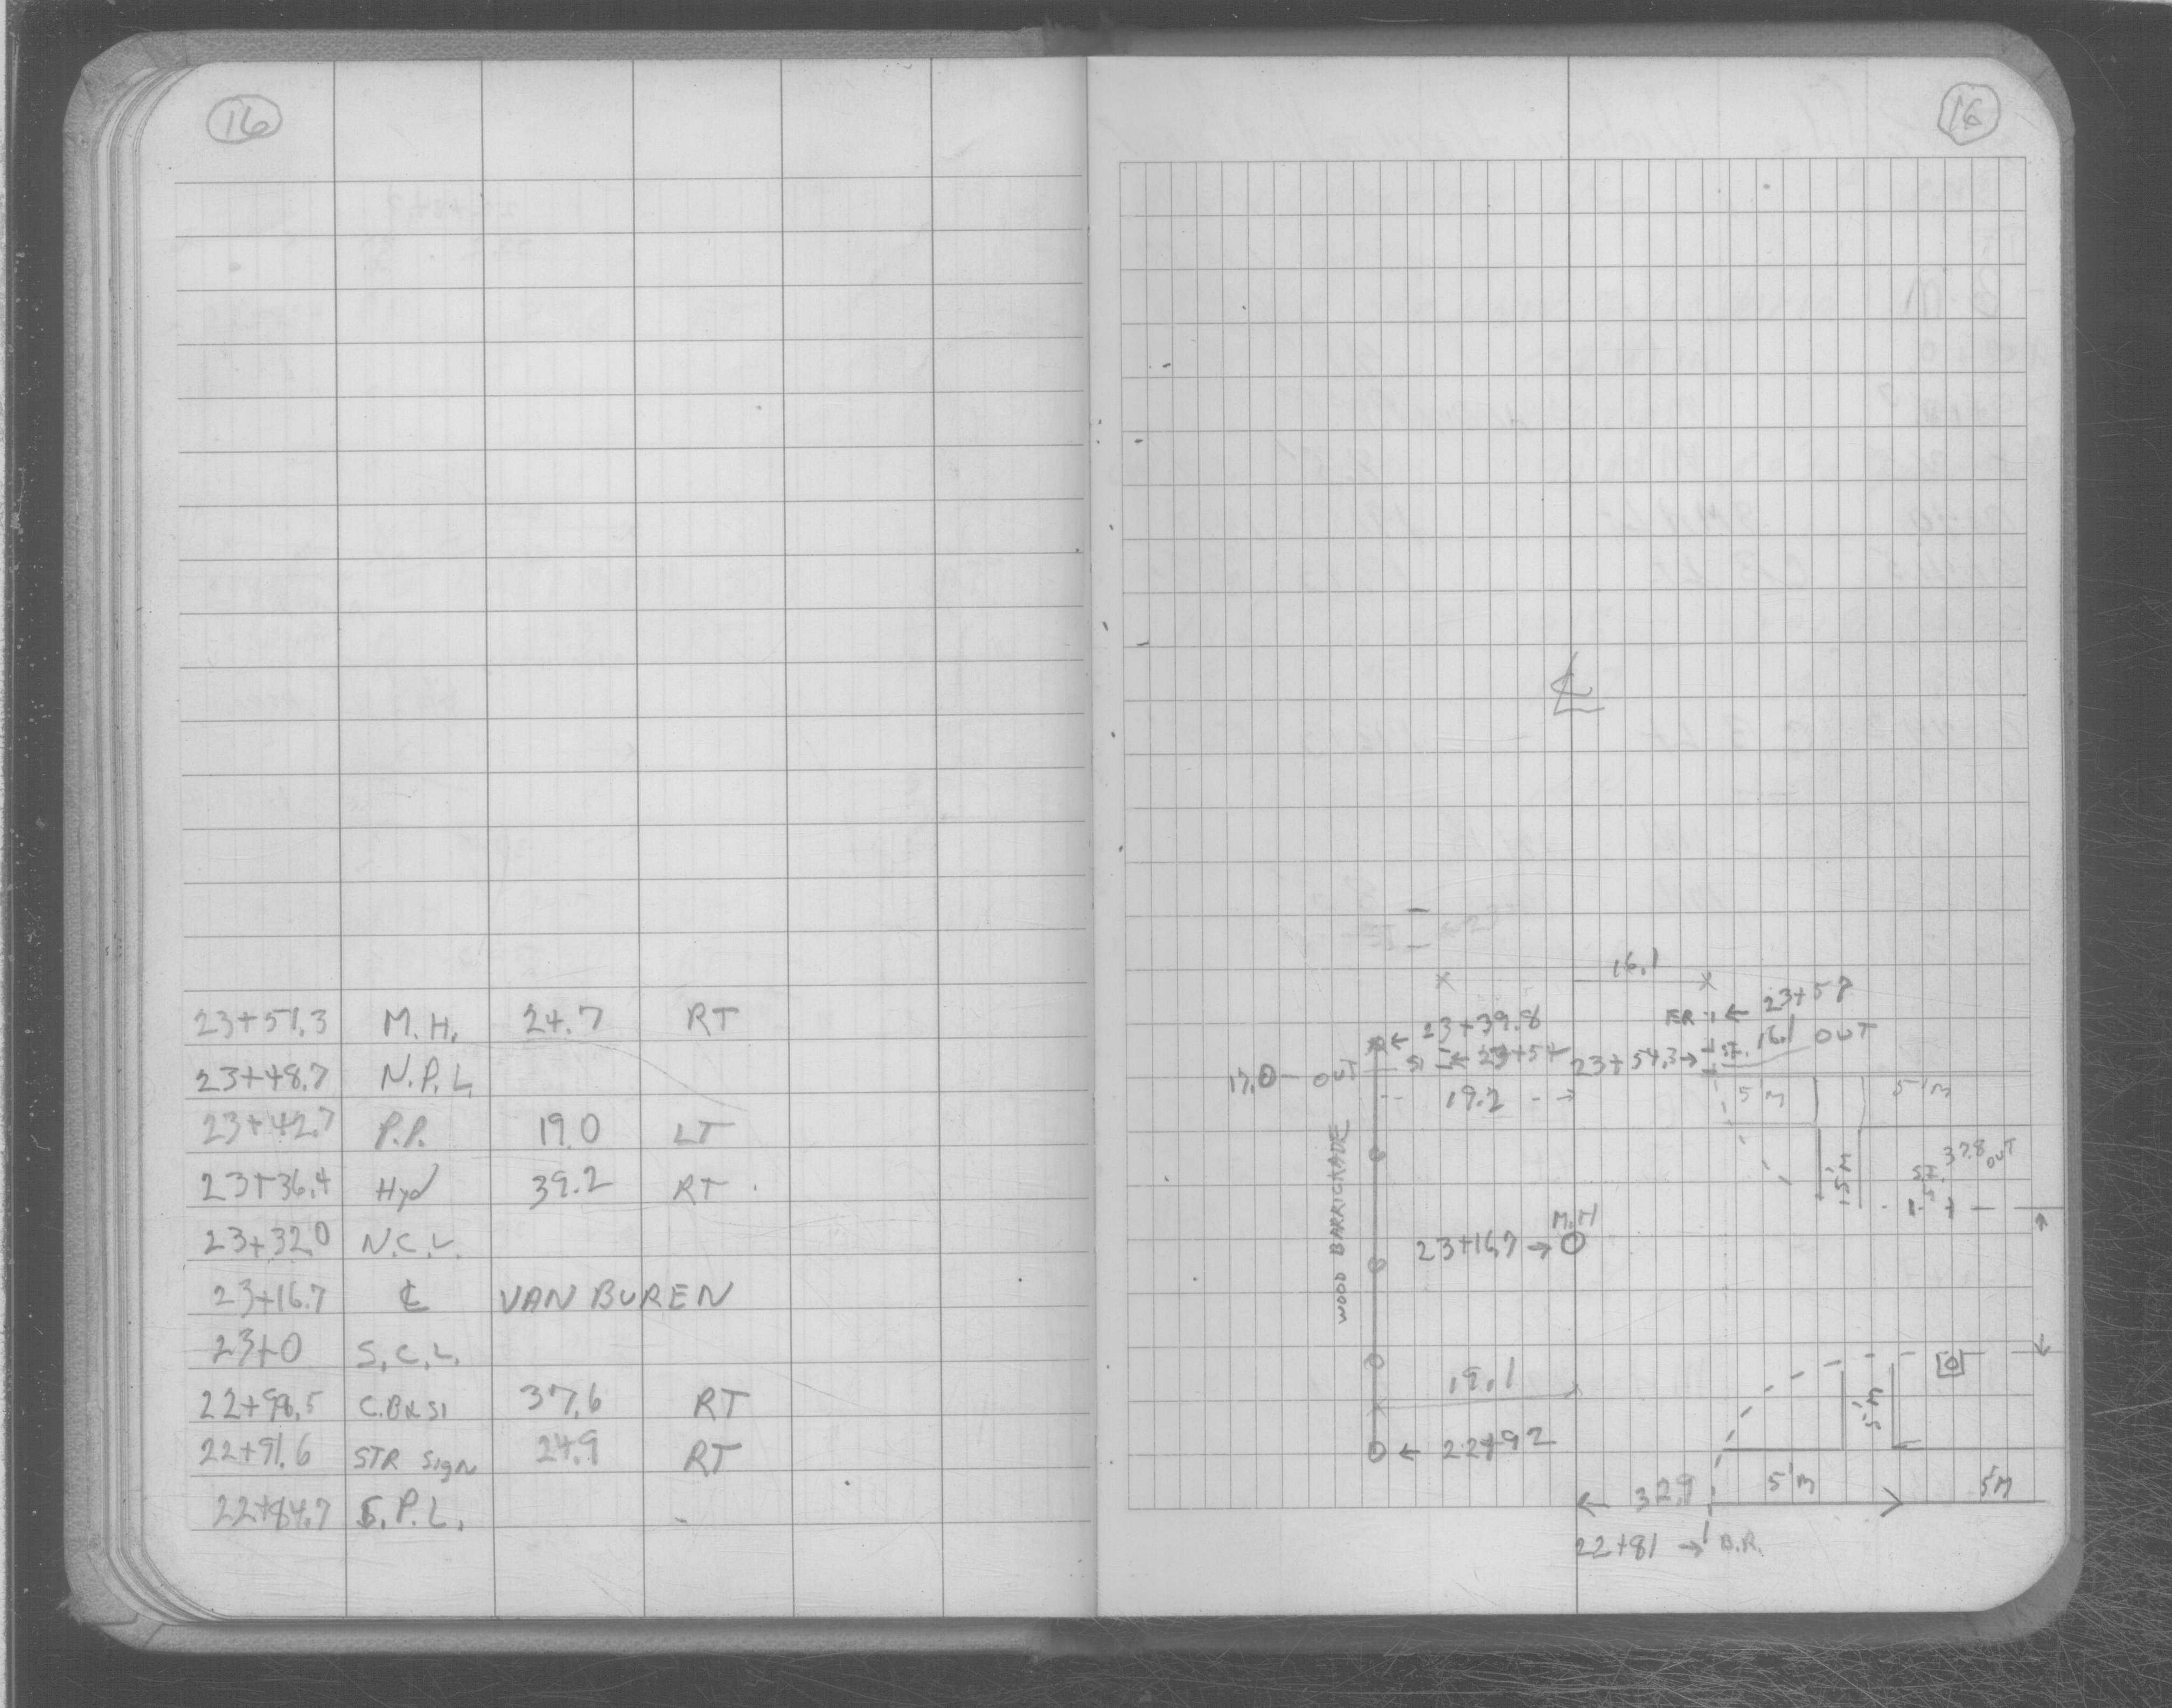 16
23+51.3 M.H. 24.7 RT
23+48.7 N.P.L.
23+42.7 P.P. 19.0 LT
23+36.4 Hyd 39.2 RT
23+32.0 N.C.L.
23+16.7 ℄ VAN BUREN
23+0 S.C.L.
22+98.5 C.B. 37.6 RT
22+91.6 STR Sign 24.9 RT
22+84.7 S.P.L.
16
℄
16.1
ER ← 23+58
← 23+39.8
16.1 OUT
17.0 OUT SI ← 23+54
23+54.3 → SI.
19.2
5'M
5'M
WOOD BARRICADE
5'M
SI. 37.8 OUT
M.H
23+16.7 → O
19.1
5'M
← 22+92
32.9
5'M
5'M
22+81 → B.R.